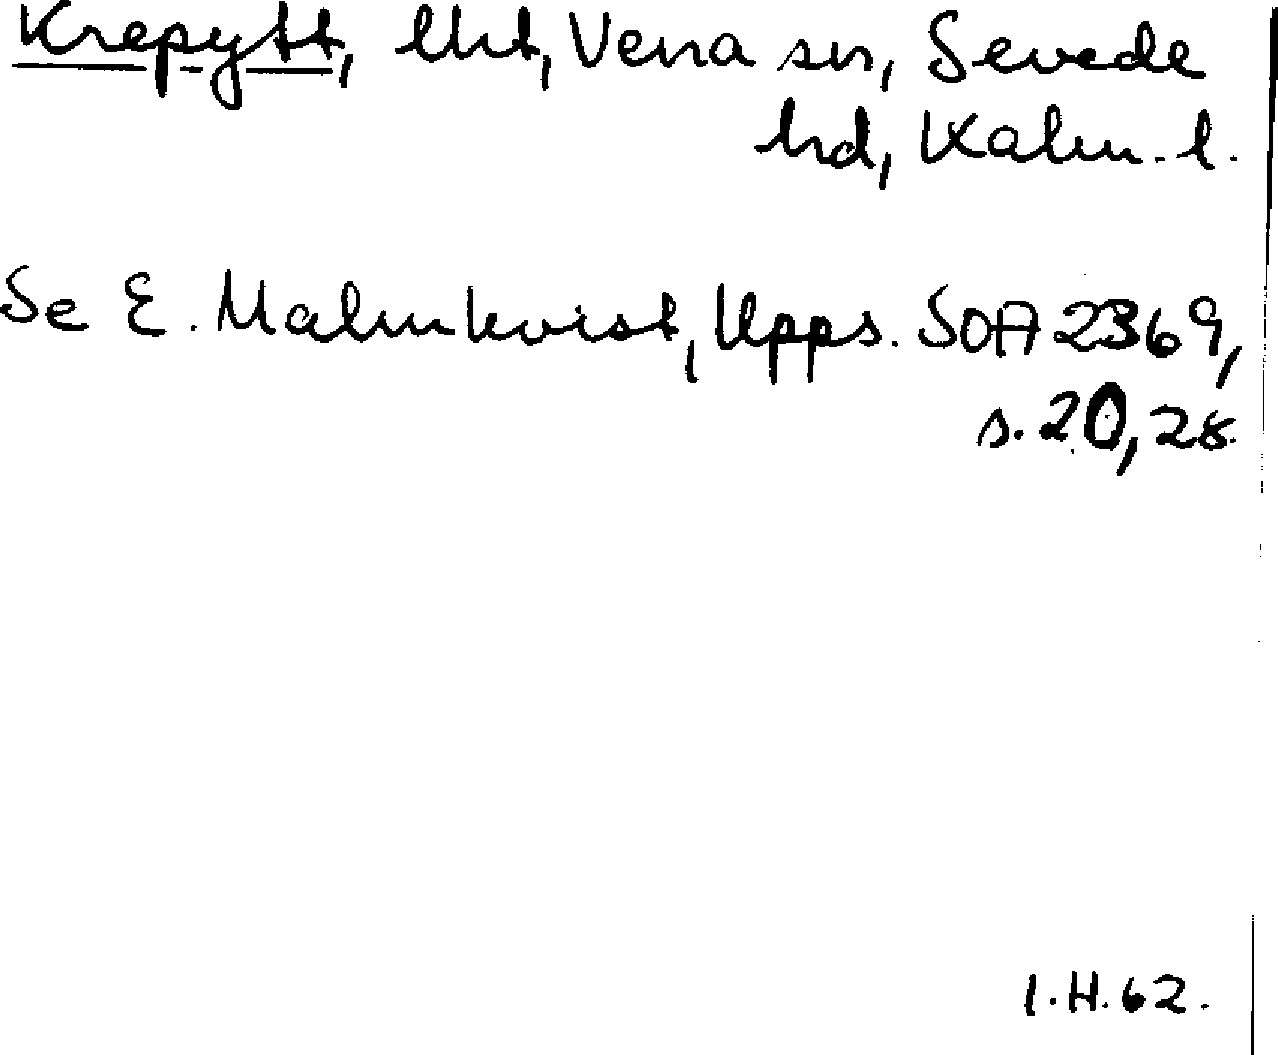 Krepytt, lht, Vena sn, Sevede
hd, Kalm. l.
Se E. Malmkvist, Upps. SOA 2369,
s. 20, 28.
I.H. 62.